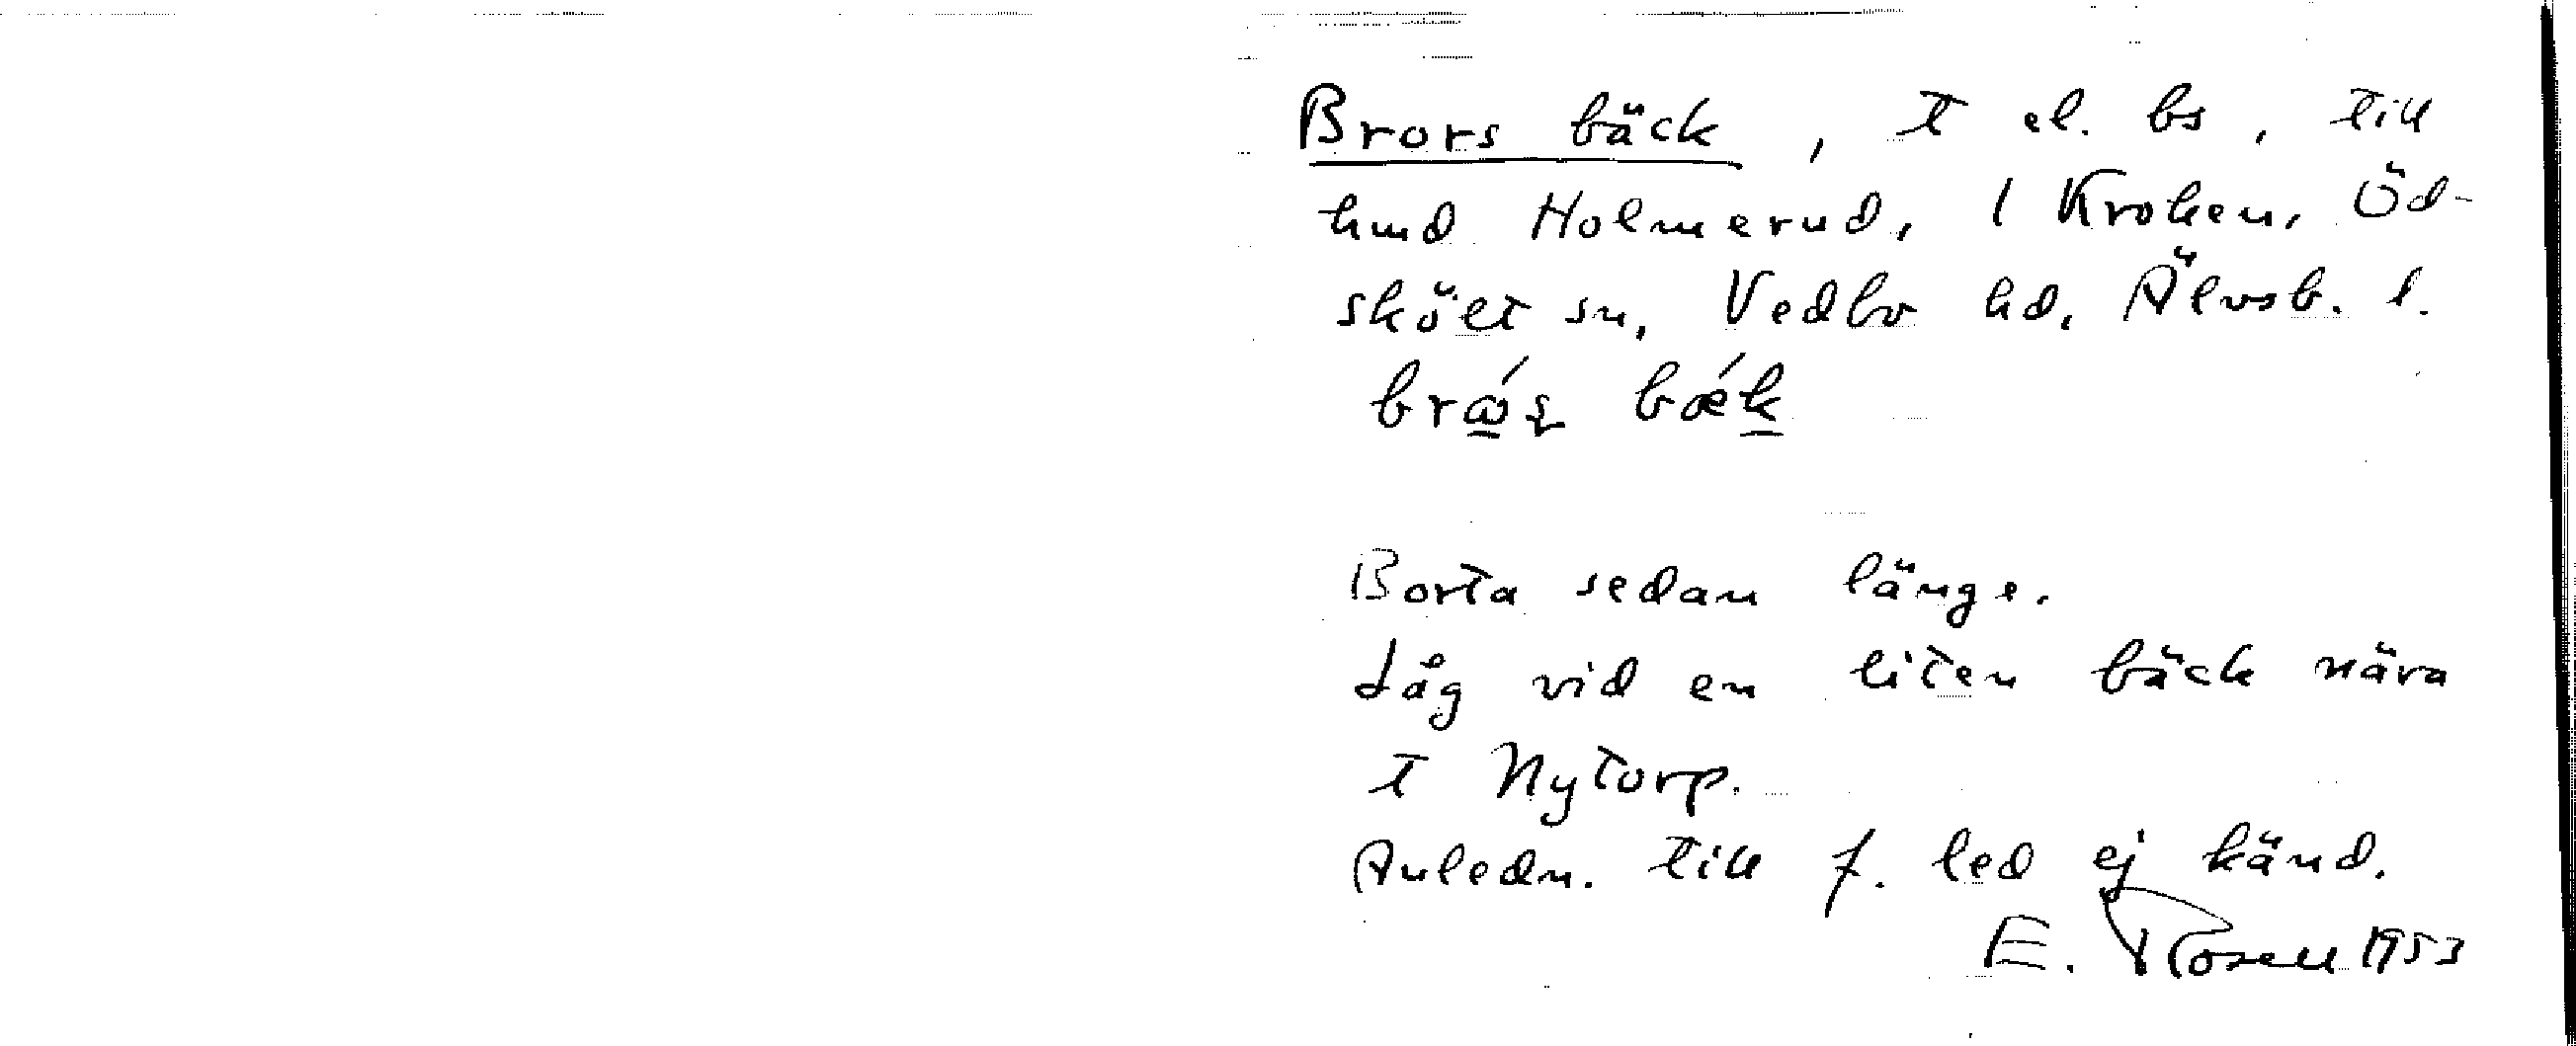 Brors bäck, t el. bs, till
hmd Holmerud, 1 Kroken, Öd-
skölt sn, Vedbo hd, Älvsb. l.
bäk
Borta sedan länge.
Låg vid en liten bäck nära
t Nytorp.
Anledn. till f. led ej känd.
E. Rosell 1953